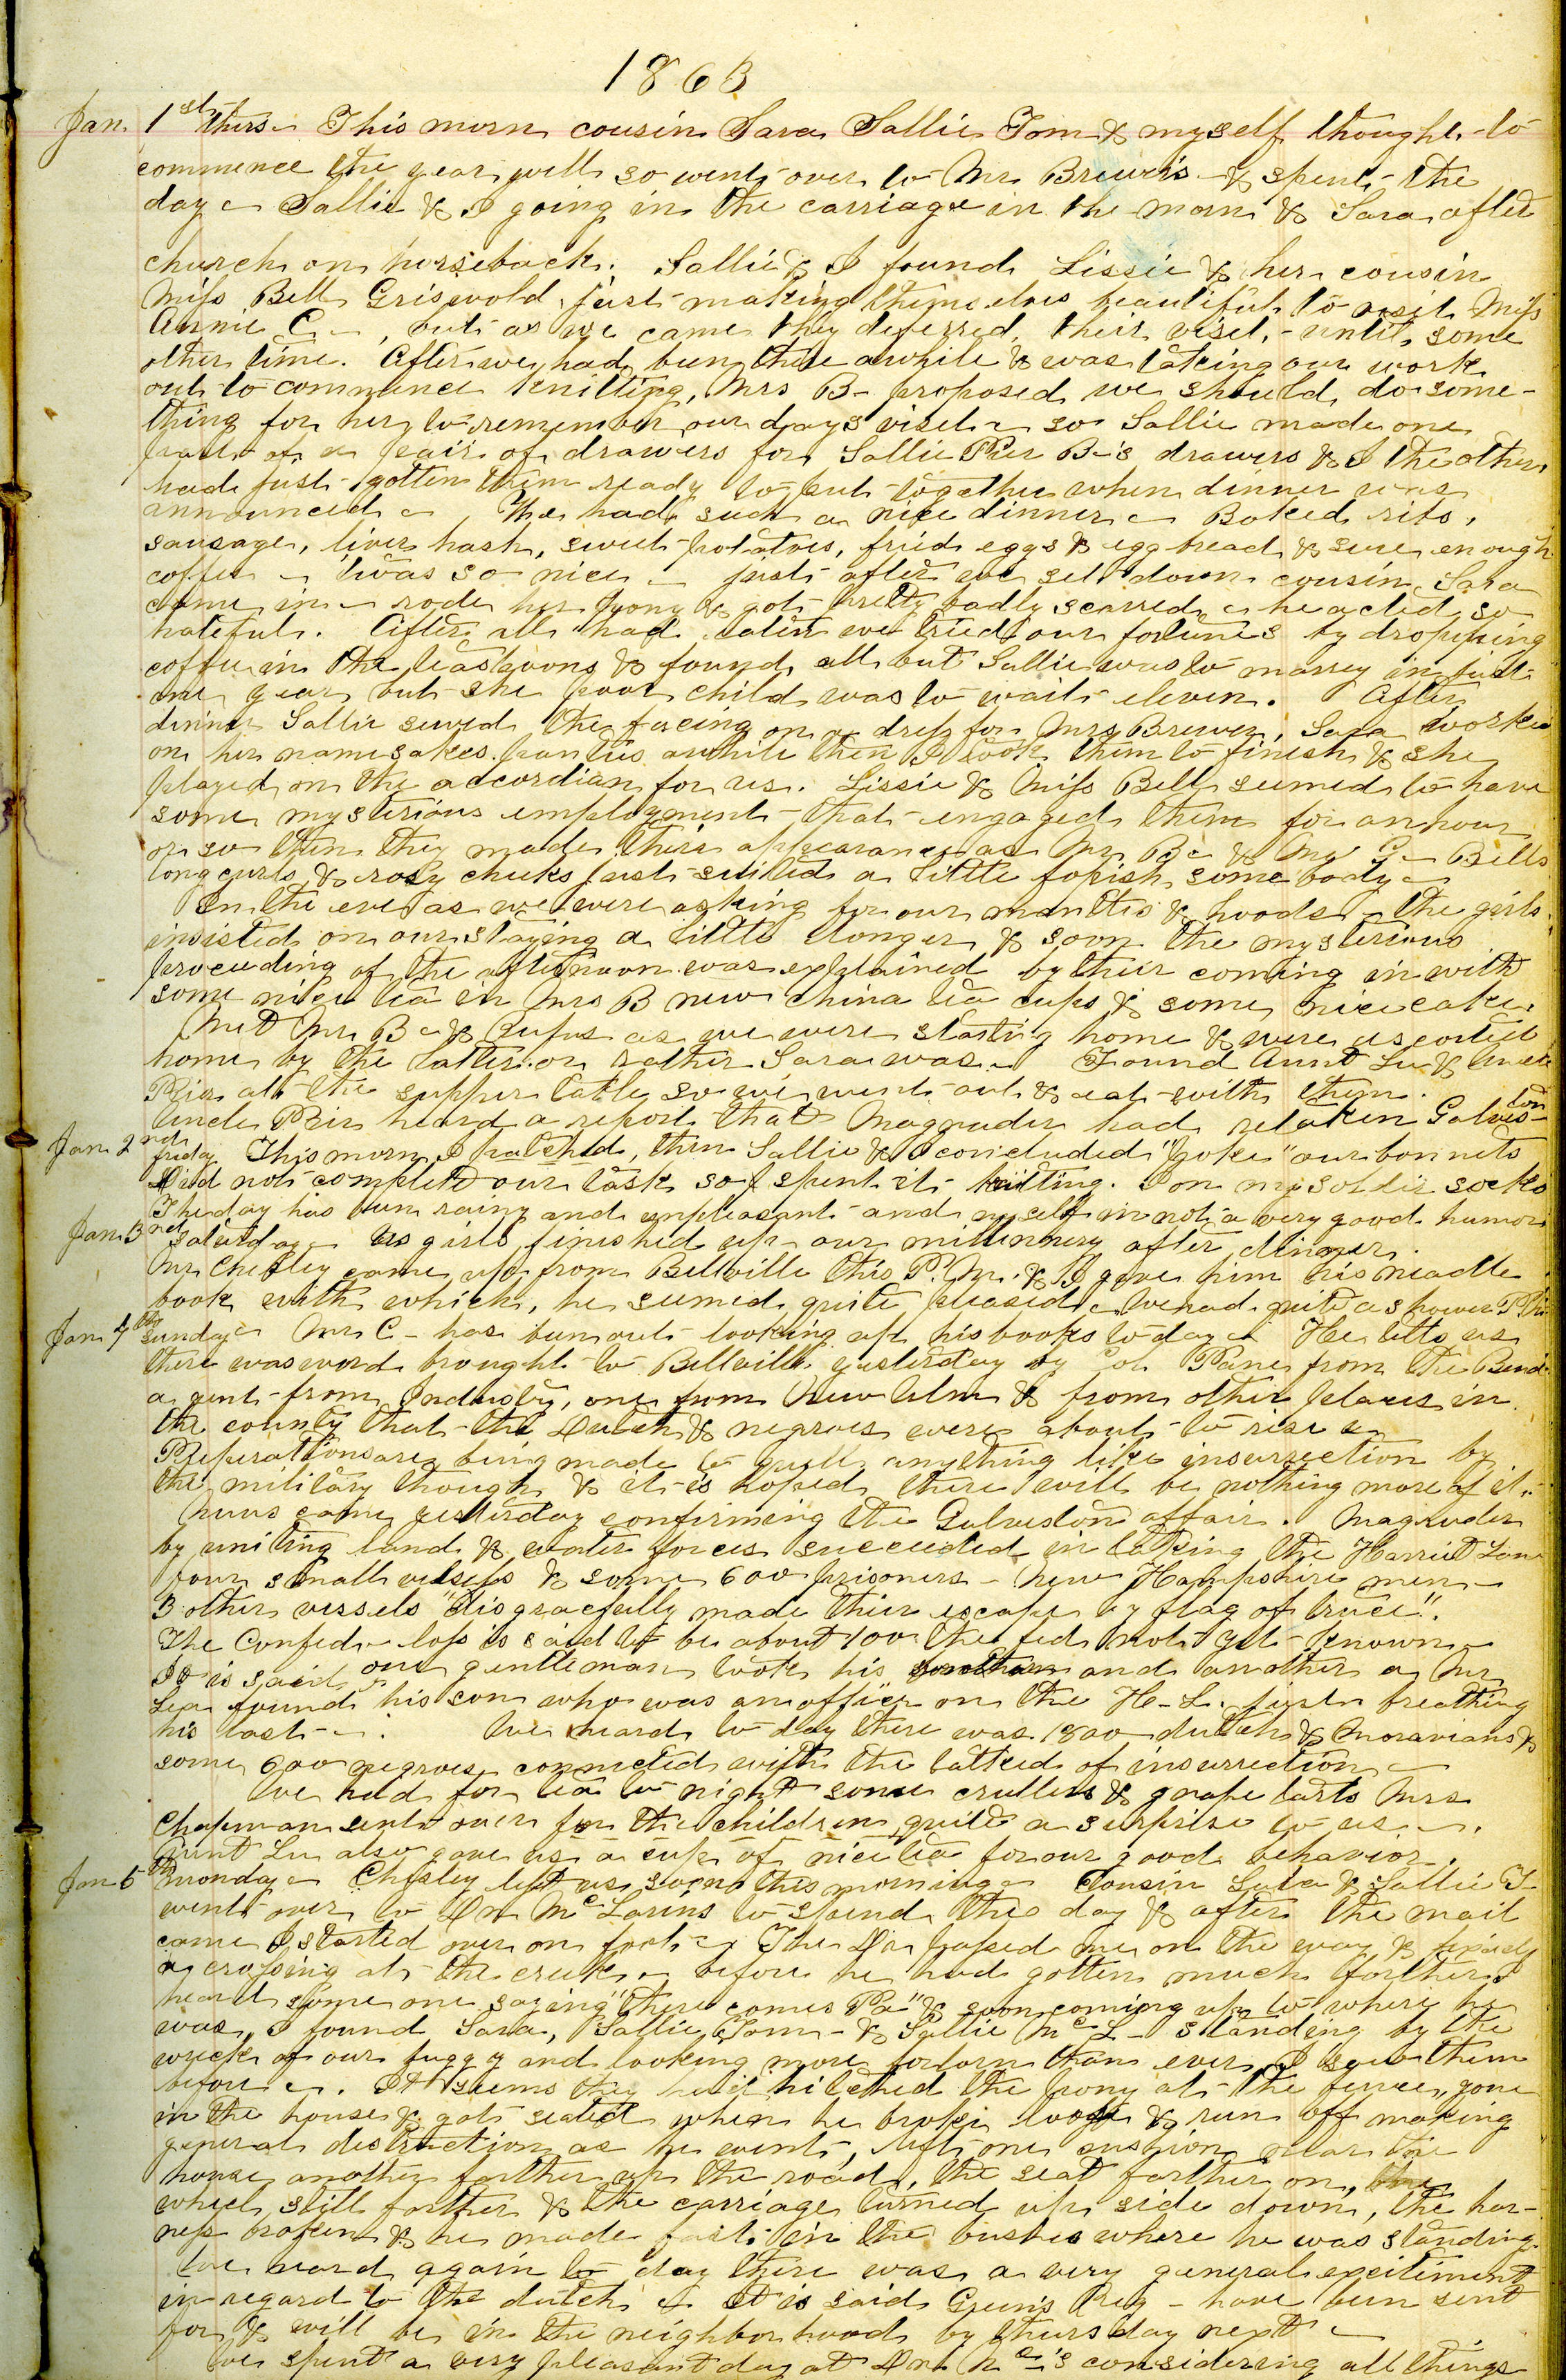 1863
Jan. 1st thurs - This morn cousin Sara Sallie Tom & myself thought to
commence the year well so went over to Mr Brewer's & spent the
day - Sallie & I going in the carriage in the morn & Sara after
church on horseback. Sallie & I found Lissie & her cousin
Miss Bell Griswold just making themselves beautiful to visit Miss
Annie C -, but as we came they deferred their visit, - until some
other time. After we had been there awhile & was taking our work
out to commence knitting, Mrs B - proposed we should do some-
thing for her to remember our days visit - so Sallie made one
part of a pair of drawers for Sallie Pier B-'s drawers & I the other
had just gotten them ready to put together when dinner was
announced - We had such a nice dinner - Baked ribs,
sausage, liver hash, sweet potatoes, fried eggs & egg bread & sure enough
coffee - twas so nice - just after we set down cousin Sara
came in - rode her pony & got pretty badly scarred - he acted so
hateful. After all had eaten we tried our fortunes by dropping
coffee in the teaspoons & found all but Sallie was to marry in just
one year but she poor child was to wait eleven. After
dinner Sallie sewed the facing on a dress for Mrs Brewer, Sara worked
on her namesakes panties awhile then I took them to finish & she
played on the accordian for us. Lissie & Miss Bell seemed to have
some mysterious employment that engaged them for an hour
or so then they made their appearance as Mr B - & Mr G - Bells
long curls & rosy cheeks just suited a little fopish some body -
In the eve as we were asking for our mantles & hoods - the girls
insisted on our staying a little longer & soon the mysterious
proceeding of the afternoon was explained by their coming in with
some nice tea in Mrs B new china tea cups & some nice cake.
Met Mr B - & Rufus as we were starting home & were escorted
home by the latter or rather Sara was - Found Aunt Lu & Uncle
Pier at the supper table so we went out & eat with them.
Uncle Pier heard a report that Magruder had retaken Galveston
Jan 2nd friday This morn I patched, then Sallie & I concluded "yoke" our bonnets
Did not complete our task so I spent it knitting. I on my soldier socks
The day has been rainy and unpleasant and myself in not a very good humor
Jan. 3rd saturday - Us girls finished up our millinnery after dinner.
Mr Chesley came up from Bellville this P.M. & I gave him his needle
book with which, he seemed quite pleased - We had quite a shower
Jan 4th sunday - Mr C - has been out looking up his books to day - He tells us
there was word brought to Bellville yesterday by Col Pane from the Bend
a gent from Industry, one from New Ulm & from other places in
the county that the Dutch & negroes were about to rise -
Preperations are being made to quell anything like insurrection by
the military though & it is hoped there will be nothing more of it -
News came yesterday confirming the Galveston affair. Magruder
by uniting land & water forces succeeded in taking the Harriet Lane
four small vessels & some 600 prisoners - New Hampshire men -
3 other vessels "disgracefully made their escape by flag of truce".
The Confed - loss is said to be about 100 the fed not yet known -
It is said one gentleman took his and another a Mr
Lea found his son who was an officer on the H - L - just breathing
his last - . We heard to day there was 1800 dutch & Moravians &
some 600 negroes connected with the of insurrection -
We had for tea to night some crullers & grape tarts Mrs
Chapman sent over for the children quite a surprise to us - .
Aunt Lu also gave us a cup of nice tea for our good behavior.
Jan 5th monday - Chesley left us soon this morning - Cousin Sara & Sallie T
went over to Dr McLarins to spend the day & after the mail
came I started over on foot - The Dr passed me on the way &
crossing at the creek - before he had gotten much farther I
heard some one saying "there comes Pa" & soon coming up to where he
was, I found Sara, Sallie, Tom - & Sallie McL - standing by the
wreck of our buggy and looking more forlorn than ever I saw them
before - . It seems they had hitched the pony at the fence, gone
in the house & got seated when he broke loose & run off making
general destruction as he went, left one cushion near the
house another farther up the road, the seat farther on,
wheel still farther & the carriage turned up side down, the har-
ness broken & he made fast in the bushes where he was standing.
We heard again to day there was a very general excitement
in regard to the dutch - It is said Green's Reg - have been sent
for & will be in the neighborhood by thursday next -
We spent a very pleasant day at Dr Mc-'s considering all things